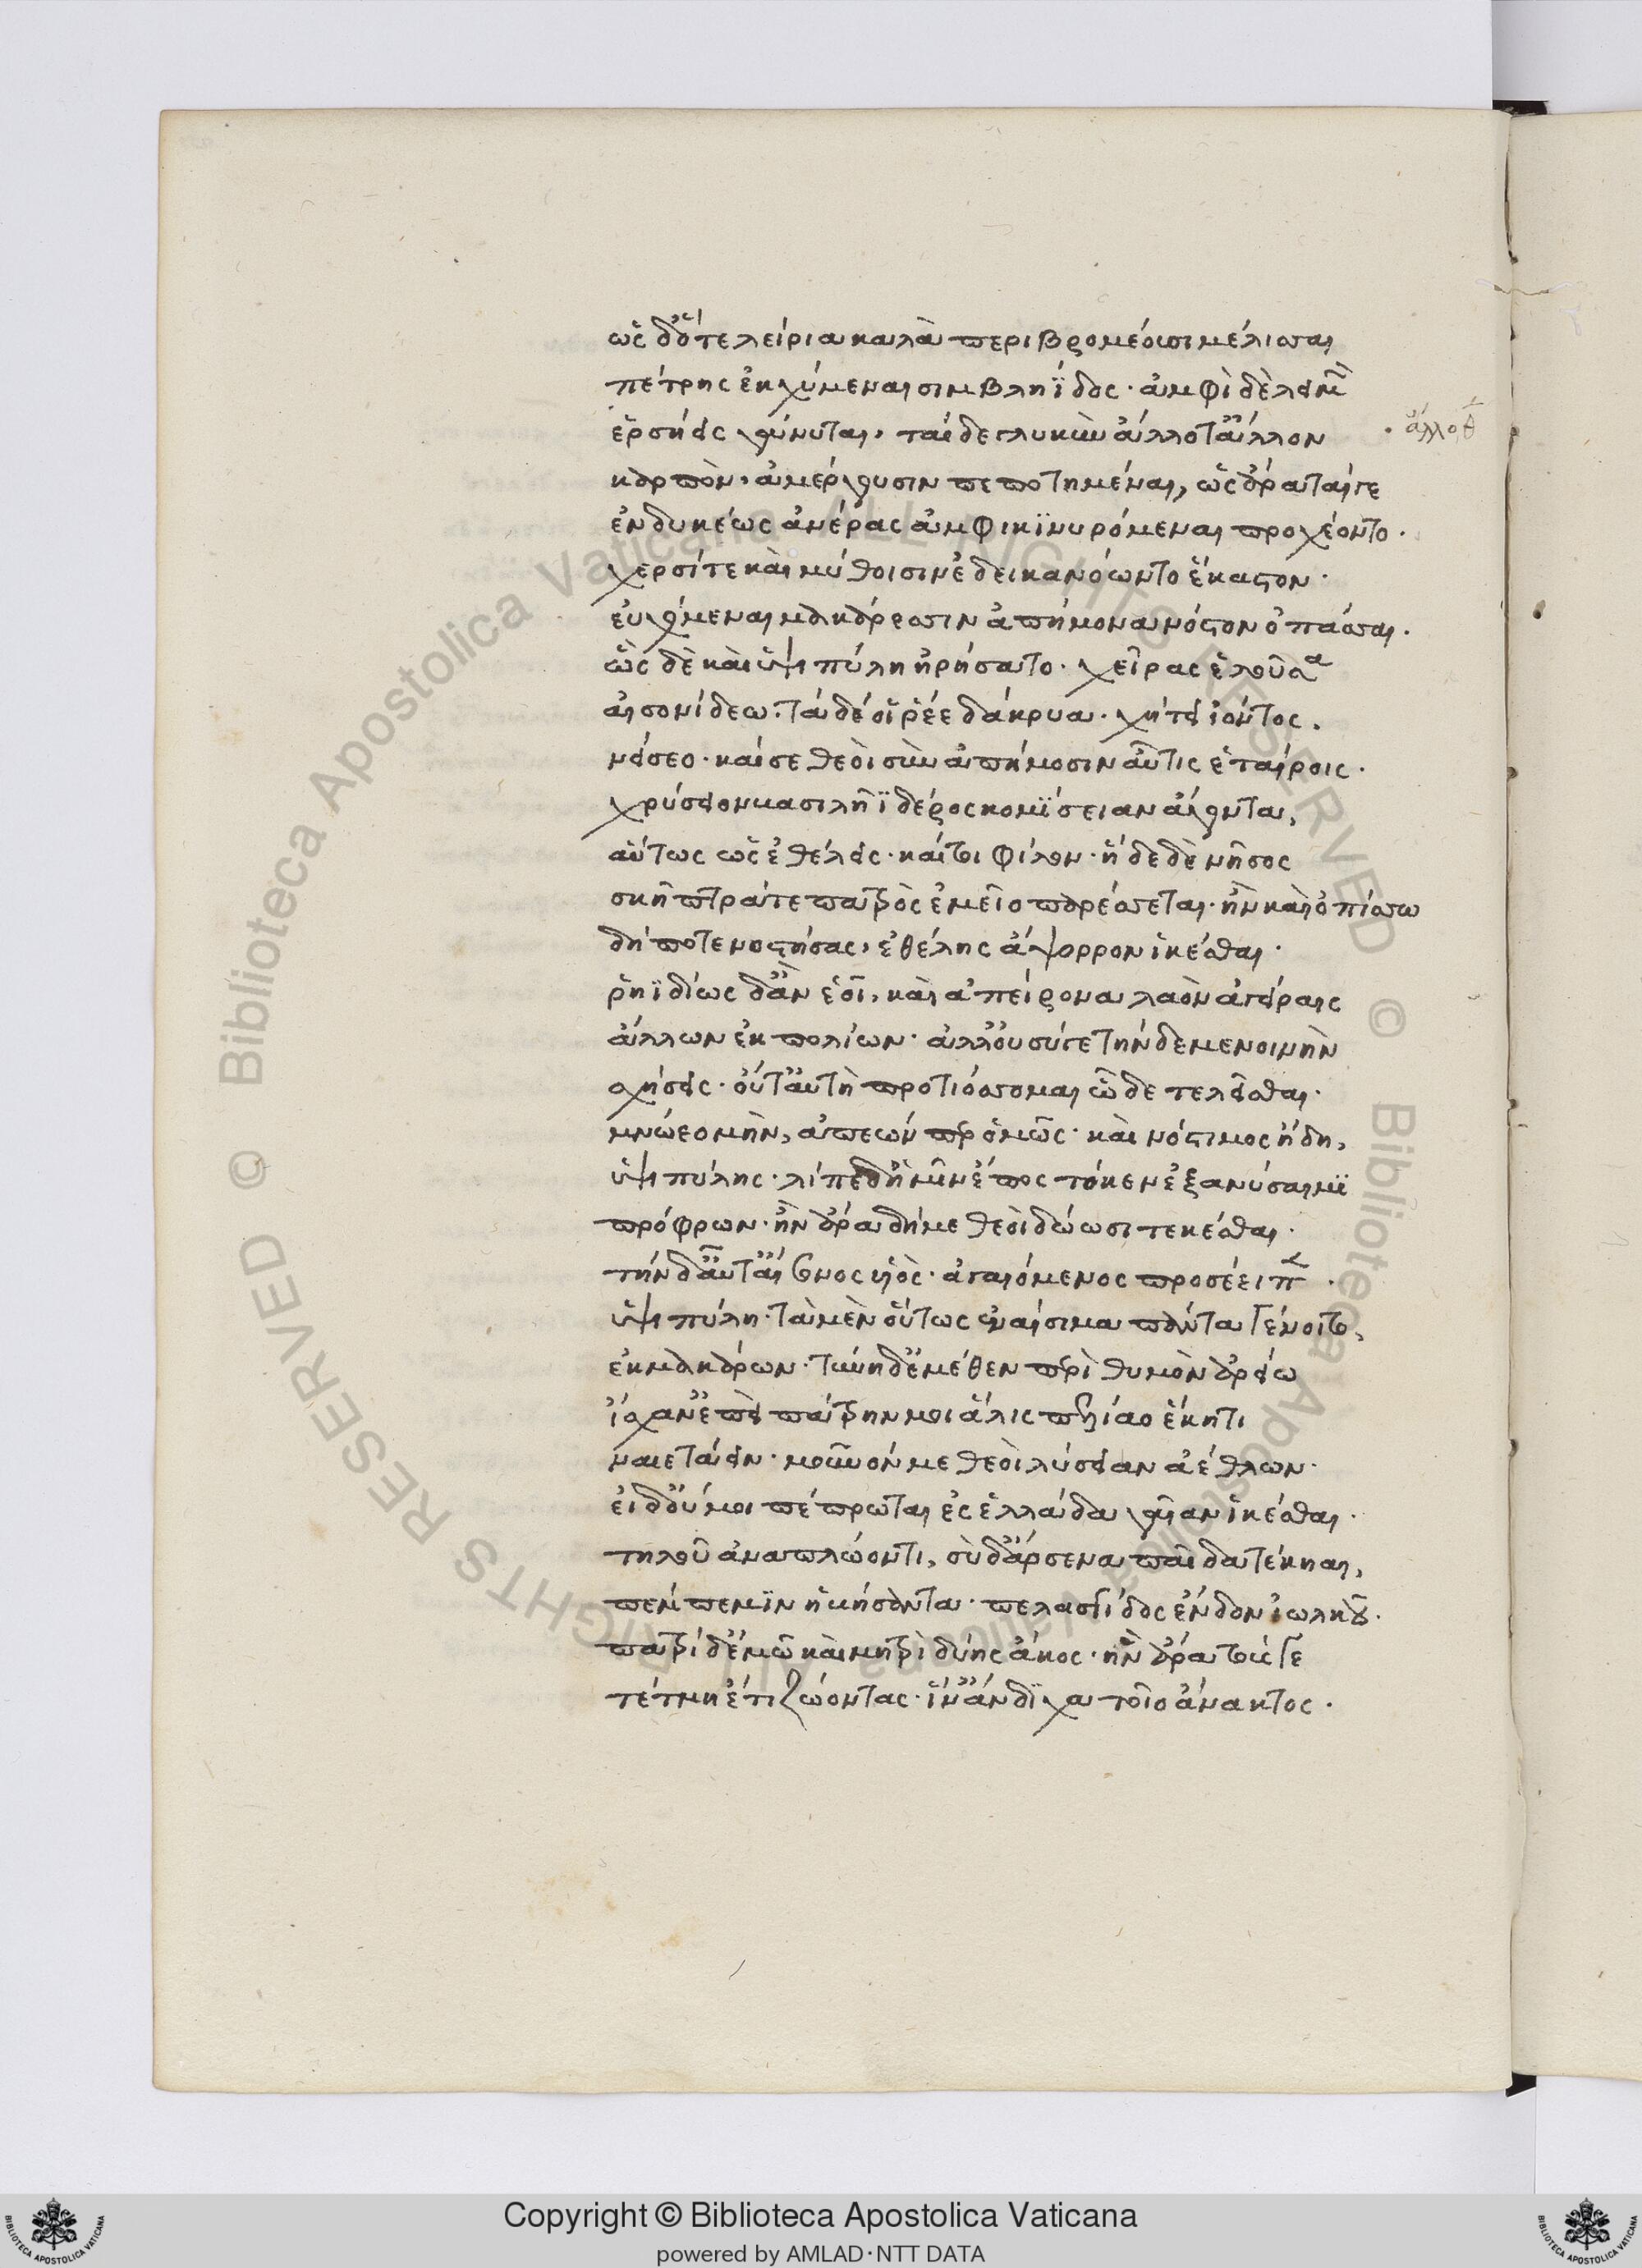 ὡς δ' ὅτε λείρια καλὰ περιβρομέουσι μέλισσαι
πέτρης ἐκχύμεναι σιμβληΐδος· ἀμφὶ δὲ λειμὼν
ἑρσήεις γάνυται, ταὶ δὲ γλυκὺν ἄλλοτ' ἄλλον
· ἄλλοθ
καρπὸν, ἀμέργουσιν πεποτημέναι, ὣς ἄρα ταίγε
ἐνδυκέως ἀνέρας ἀμφικινυρόμεναι προχέοντο.
χερσί τε καὶ μύθοισιν ἐδεικανόωντο ἕκαστον·
εὐχόμεναι μακάρεσσιν ἀπήμονα νόστον ὀπάσσαι.
ὣς δὲ καὶ ὑψιπύλη ἠρήσατο· χεῖρας ἑλοῦσα
αἰσονίδεω. τὰ δέ οἱ ῥέε δάκρυα· χήτει ἰόντος.
νίσεο· καί σε θεοὶ σὺν ἀπήμοσιν αὖτις ἑταίροις·
χρύσειον βασιλῆϊ δέρος κομίσειαν ἄγοντα,
αὕτως ὡς ἐθέλεις· καί τοι φίλον· ἥδε δὲ νῆσος
σκῆπτρά τε πατρὸς ἐμεῖο παρέσσεται· ἢν καὶ ὀπίσσω
δή ποτε νοστήσας, ἐθέλης ἄψορρον ἱκέσθαι·
ῥηϊδίως δ' ἂν ἑοῖ, καὶ ἀπείρονα λαὸν ἀγείραις
ἄλλων ἐκ πολίων· ἀλλ' οὐ σύγε τήνδε μενοινὴν
σχήσεις· οὔτ' αὐτὴ προτιόσσομαι ὧδε τελεῖσθαι·
μνώεο μὴν, ἀπεών περ ὁμῶς· καὶ νόστιμος ἤδη,
ὑψιπύλης· λίπε δ' ἧμιν ἔπος τό κεν ἐξανύσαιμι
πρόφρων· ἢν ἄρα δή με θεοὶ δώωσι τεκέσθαι·
τὴν δ' αὖτ' αἴσονος υἱὸς· ἀγαιόμενος προσέειπεν.
ὑψιπύλη· τὰ μὲν οὕτως ἐναίσιμα πάντα γένοιτο,
ἐκ μακάρων· τύνη δ' ἐμέθεν πέρι θυμὸν ἀρείω
ἴσχαν' ἐπεὶ πάτρην μοι ἅλις πελίαο ἕκητι
ναιετάειν· μοῦνόν με θεοὶ λύσειαν ἀέθλων·
εἰ δ' οὔ μοι πέπρωται ἐς ἑλλάδα γαῖαν ἱκέσθαι·
τηλοῦ ἀναπλώοντι, σὺ δ' ἄρσενα παῖδα τέκηαι,
πέμπε μιν ἡβήσαντα· πελασγίδος ἔνδον ἰωλκοῦ·
πατρί δ' ἐμῶ καὶ μητρὶ δύης ἄκος· ἢν ἄρα τούς γε
τέτμη ἔτι ζώοντας· ἵν' ἄνδιχα τοῖο ἄνακτος.
Copyright © Biblioteca Apostolica Vaticana
powered by AMLAD·NTT DATA